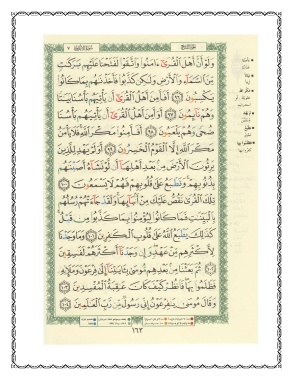 وَلَوْ أَنَّ أَهْلَ ٱلْقُرَىٰٓ ءَامَنُوا۟ وَٱتَّقَوْا۟ لَفَتَحْنَا عَلَيْهِم بَرَكَٰتٍ
مِّنَ ٱلسَّمَآءِ وَٱلْأَرْضِ وَلَٰكِن كَذَّبُوا۟ فَأَخَذْنَٰهُم بِمَا كَانُوا۟
يَكْسِبُونَ ٩٦ أَفَأَمِنَ أَهْلُ ٱلْقُرَىٰٓ أَن يَأْتِيَهُم بَأْسُنَا بَيَٰتًا
وَهُمْ نَآئِمُونَ ٩٧ أَوَأَمِنَ أَهْلُ ٱلْقُرَىٰٓ أَن يَأْتِيَهُم بَأْسُنَا
ضُحًى وَهُمْ يَلْعَبُونَ ٩٨ أَفَأَمِنُوا۟ مَكْرَ ٱللَّهِ فَلَا يَأْمَنُ
مَكْرَ ٱللَّهِ إِلَّا ٱلْقَوْمُ ٱلْخَٰسِرُونَ ٩٩ أَوَلَمْ يَهْدِ لِلَّذِينَ
يَرِثُونَ ٱلْأَرْضَ مِنۢ بَعْدِ أَهْلِهَآ أَن لَّوْ نَشَآءُ أَصَبْنَٰهُم
بِذُنُوبِهِمْ وَنَطْبَعُ عَلَىٰ قُلُوبِهِمْ فَهُمْ لَا يَسْمَعُونَ ١٠٠
تِلْكَ ٱلْقُرَىٰ نَقُصُّ عَلَيْكَ مِنْ أَنۢبَآئِهَا وَلَقَدْ جَآءَتْهُمْ رُسُلُهُم
بِٱلْبَيِّنَٰتِ فَمَا كَانُوا۟ لِيُؤْمِنُوا۟ بِمَا كَذَّبُوا۟ مِن قَبْلُ
كَذَٰلِكَ يَطْبَعُ ٱللَّهُ عَلَىٰ قُلُوبِ ٱلْكَٰفِرِينَ ١٠١ وَمَا وَجَدْنَا
لِأَكْثَرِهِم مِّنْ عَهْدٍ وَإِن وَجَدْنَآ أَكْثَرَهُمْ لَفَٰسِقِينَ
١٠٢ ثُمَّ بَعَثْنَا مِنۢ بَعْدِهِم مُّوسَىٰ بِـَٔايَٰتِنَآ إِلَىٰ فِرْعَوْنَ وَمَلَإِي۟هِ
فَظَلَمُوا۟ بِهَا فَٱنظُرْ كَيْفَ كَانَ عَٰقِبَةُ ٱلْمُفْسِدِينَ ١٠٣
وَقَالَ مُوسَىٰ يَٰفِرْعَوْنُ إِنِّى رَسُولٌ مِّن رَّبِّ ٱلْعَٰلَمِينَ ١٠٤
١٦٣